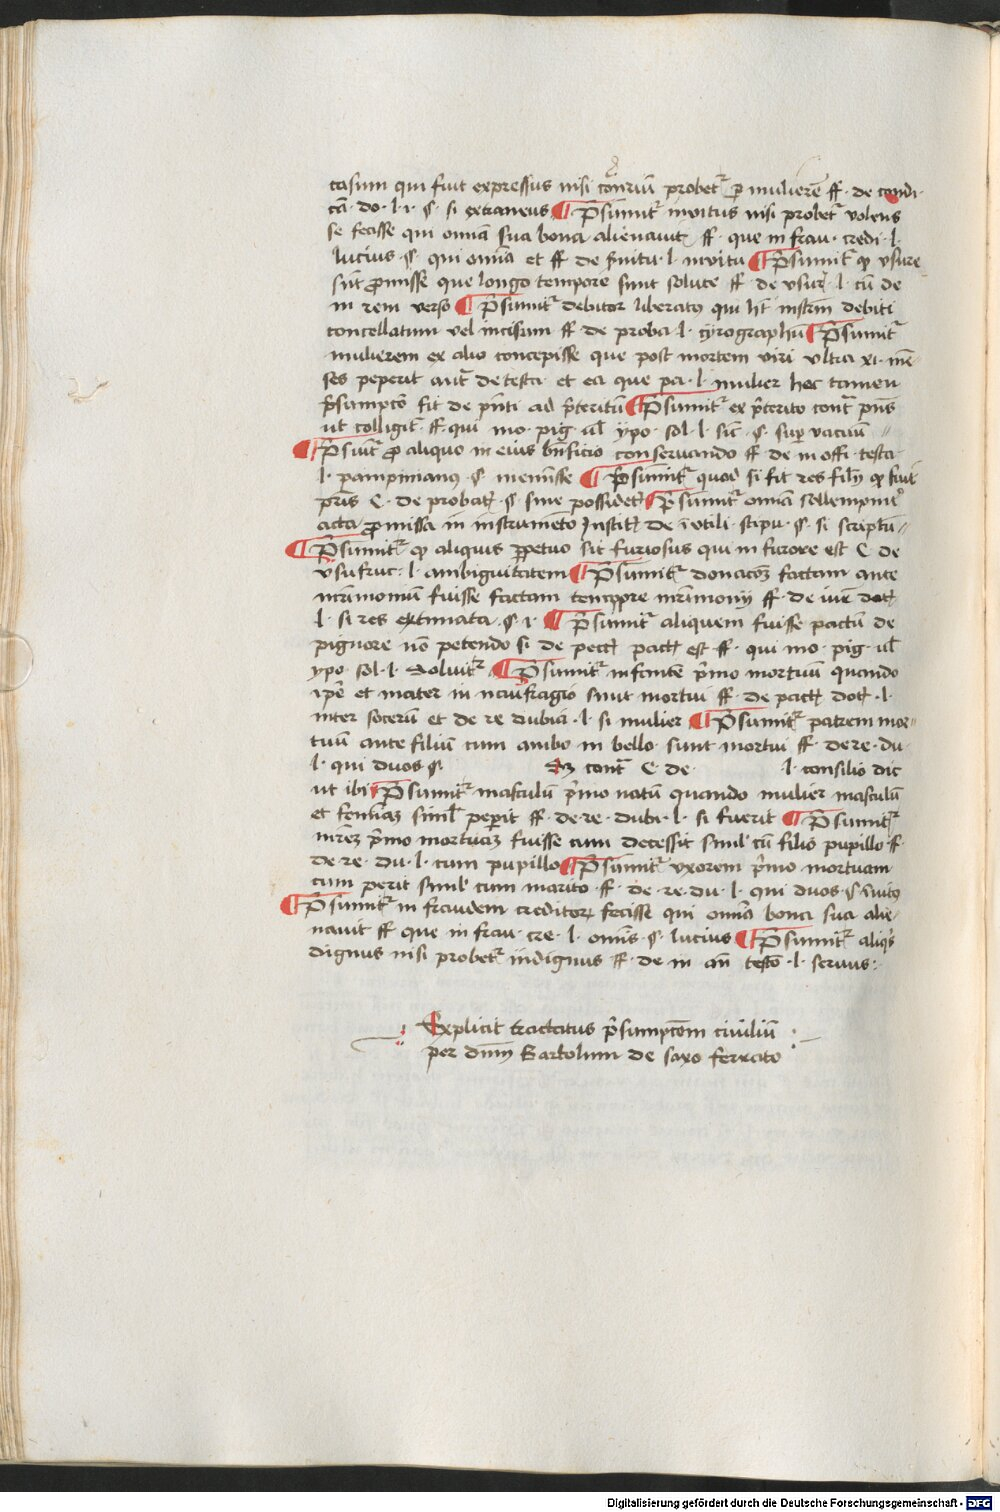 casum qui fuit expressus nisi contrariũ probet᷑ p̱ mulierẽ ff · de condi ·
cã · do · l · 1 · §. si extraneus ¶ P̃sumit᷑ invitus nisi probet᷑ volens
se fecisse qui omnia sua bona alienavit ff · que in frau · credi · l ·
lucius §. qui omĩa et ff de l · invitu ¶ P̃sumit᷑ ꝙ vsure
sũt ꝓmisse que longo tempore sunt solute ff · de vsur̃ · l · cũ de
in rem verso ¶ P̃sumit᷑ debitor liberatꝯ qui hꝫ instr̃m debiti
concellatum vel incisum ff de proba · l · cyrographũ ¶ P̃sumit᷑
mulierem ex alio concepisse que post mortem viri vltra xi · mẽ-
ses peperit aut̃ de testa · et ea que pa · l · mulier hec tamen
p̃sumpcõ fit de pñti ad p̃teritũ ¶ P̃sumit᷑ ex p̃terito cont᷑ pñs
ut colligit᷑ ff qui mo · pig · ul̃ ypo · sol · l · sic̃ · §. sup̱vacuũ //
¶ P̃sumit᷑ ꝓ aliquo in eius bñficio conservando ff · de in offi · testa ·
l · pampinianꝯ · §. meminisse ¶ P̃sumit᷑ quod si fit res filij ꝙ fuit
pris̃ C · de probat̃ · §. sive possidet̃ ¶ P̃sumit᷑ omnia sollempnit̾
acta ꝓmissa in instrumẽto Instit̃ de ĩutili stipu · §. si scriptũ //
¶ P̃sumit᷑ ꝙ aliquis ꝑpetuo sit furiosus qui in furore est C de
vsufruc · l · ambiguitatem ¶ P̃sumit᷑ donacõꝫ factam ante
mr̃imonium fuisse factam tempore mr̃imonij ff · de iure dot̃
l · si res extimata · §. 1 · ¶ P̃sumit᷑ aliquem fuisse pactũ de
pignore nõ petendo si de pact̃ est ff · qui mo · pig · ul̃
ypo · sol · l · Solvit᷑ ¶ P̃sumit᷑ infantẽ p̃mo mortuũ quando
ip̃e et mater in naufragio sint mortui ff · de pact̃ dot̃ · l ·
inter socerũ et de re dubia · l · si mulier ¶ P̃sumit᷑ patrem mor-
tuũ ante filiũ cum ambo in bello sunt mortui ff · de re · du ·
l · qui duos §. Sꝫ cont᷑ C · de l · consilio dic
ut ibi ¶ P̃sumit᷑ masculũ p̃mo natũ quando mulier masculũ
et femĩaꝫ simĩl peperit ff · de · re · dubi · l · si fuerit ¶ P̃sumit᷑
mr̃eꝫ p̃mo mortuaꝫ fuisse cum decessit simĩl cũ filio pupillo ff ·
de · re · du · l · cum pupillo ¶ P̃sumit᷑ vxorem p̃mo mortuam
cum perit simĩl cum marito ff · de · re · du · l · qui duos ·
¶ P̃sumit᷑ in fraudem creditoꝝ fecisse qui omĩa bona sua alie-
navit ff · que in frau · cre · l · omĩs · §. lucius ¶ P̃sumit᷑ aliqꝰs
dignus nisi probet᷑ indignus ff · de in testo · l · servus :
Explicit tractatus p̃sumpcõm civiliũ
per dñm Bartolum de saxo ferrato
Digitalisierung gefördert durch die Deutsche Forschungsgemeinschaft - DFG